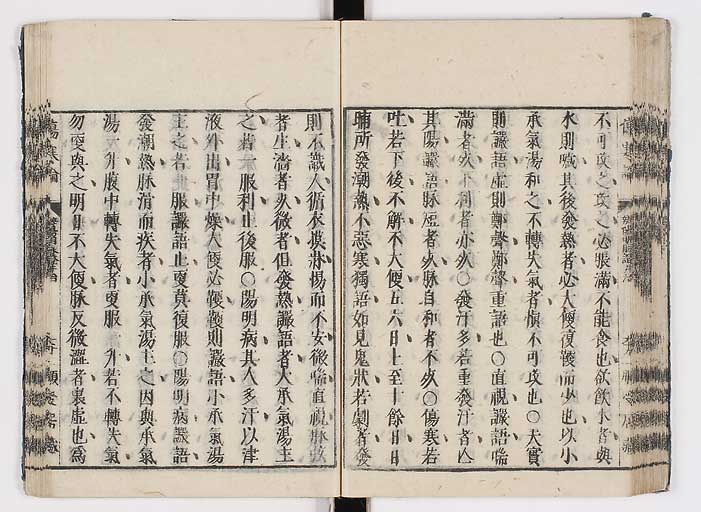 不可攻之攻之必脹滿不能食也欲飲水者與
水則噦其後發熱者必大便復鞕而少也以小
承氣湯和之不轉失氣者愼不可攻也○夫實
則讝語虛則鄭聲鄭聲重語也○直視讝語喘
滿者久下利者亦久○發汗多若重發汗者亾
其陽讝語脉虛者久脉自和者不久○傷寒若
吐若下後不解不大便五六日上至十餘日日
晡所發潮熱不惡寒獨語如見鬼狀若劇者發
則不識人循衣摸牀惕而不安微喘直視脉
者生濇者久微者但發熱讝語者大承氣湯主
之若一服利止後服○陽明病其人多汗以津
液外出胃中燥大便必鞕鞕則讝語小承氣湯
主之若一服讝語止更莫復服○陽明病讝語
發潮熱脉滑而疾者小承氣湯主之因與承氣
湯一升腹中轉失氣者更服一升若不轉失氣
勿更與之明日不大便脉反微濇者裏虛也爲